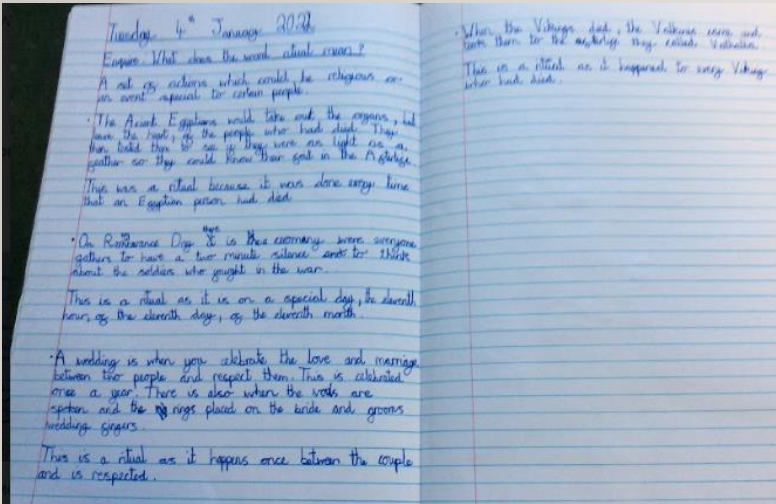 Tuesday 4th January 2022
Enquire: What does the word ritual mean?
A set of actions which could be religious or
an event special to certain people.
· The Acient Egyptians would take out the organs, but
leave the heart, of the people who had died. They
then tested them to see if they were as light as a
feather so they could know their fate in the Afterlife
This was a ritual because it was done every time
that an Egyptian person had died
· On Remberance Day there is a ceromany were everyone
gathers to have a two minute silence and to think
about the soldiers who fought in the war.
This is a ritual as it is on a special day, the eleventh
hour, of the eleventh day, of the eleventh month.
· A wedding is when you celebrate the love and marriage
between two people and respect them. This is celebrated
once a year. There is also when the vows are
spoken and the rings placed on the bride and grooms
wedding fingers.
This is a ritual as it happens once between the couple
and is respected.
· When the Vikings died, the Valkyrie came and
took them to the afterlife they called Valhalla.
This is a ritual as it happened to every Viking
who had died.